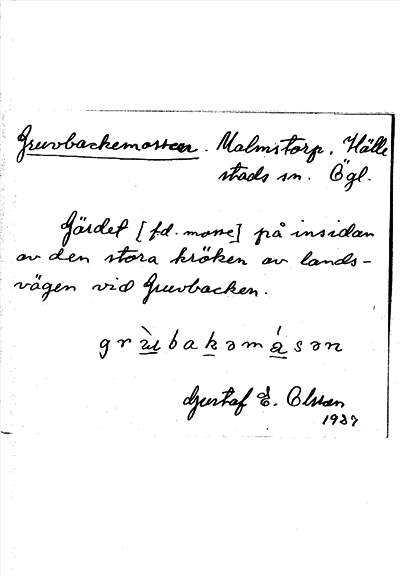 Gruvbackemossen. Malmstorp. Hälle
stads sn. Ögl.
Gärdet [f.d. mosse] på insidan
av den stora kröken av lands-
vägen vid Gruvbacken.
grùbakəmásən
Gustaf E. Olsson
1937